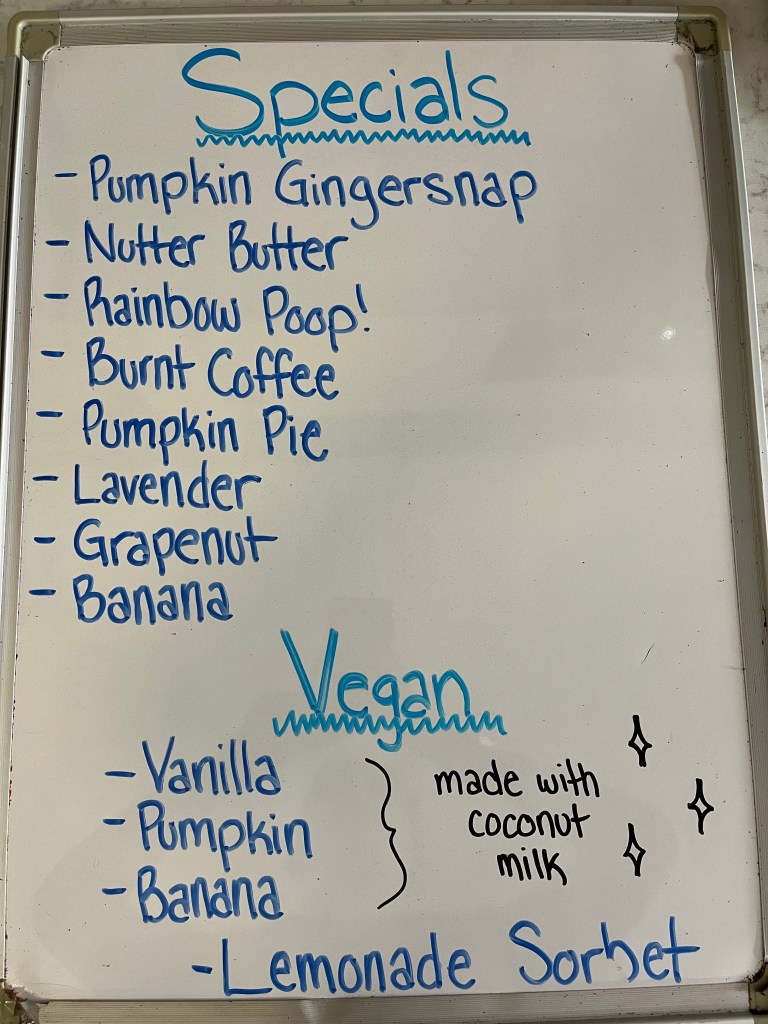 Specials
- Pumpkin Gingersnap
- Nutter Butter
- Rainbow Poop!
- Burnt Coffee
- Pumpkin Pie
- Lavender
- Grapenut
- Banana
Vegan
- Vanilla
- Pumpkin
- Banana
made with
coconut
milk
- Lemonade Sorbet